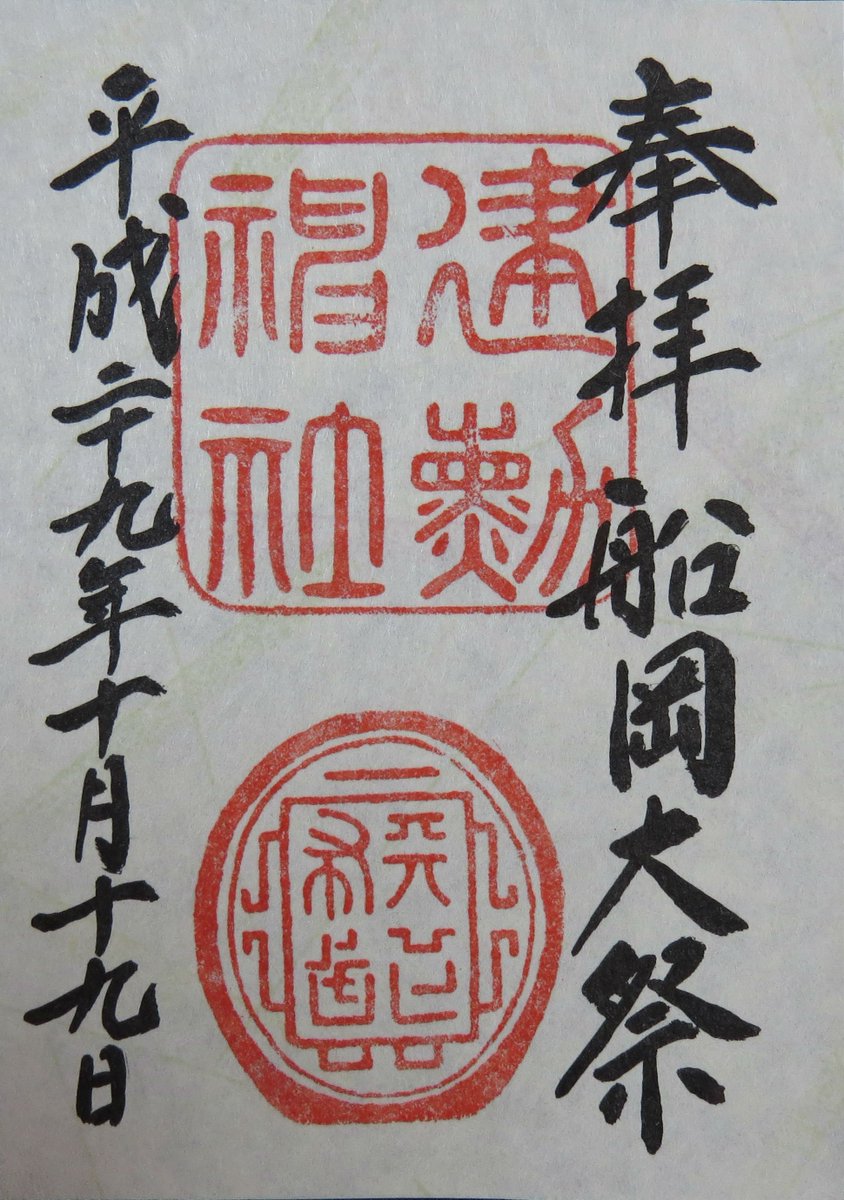 奉拝 船岡大祭
建勲
神社
平成二十九年十月十九日